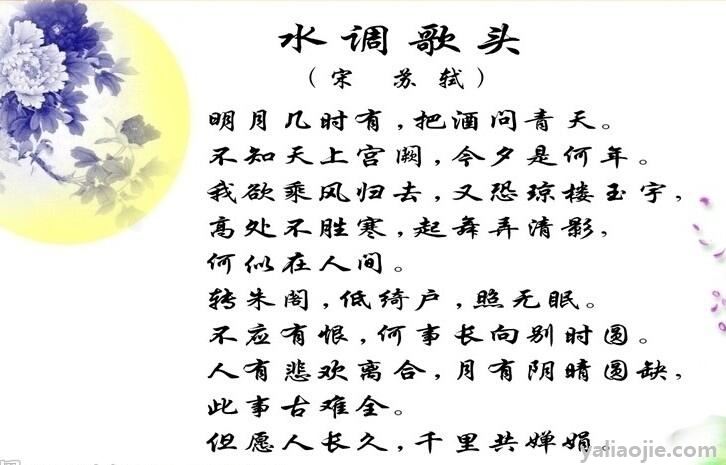 水调歌头
(宋 苏轼)
明月几时有,把酒问青天。
不知天上宫阙,今夕是何年。
我欲乘风归去,又恐琼楼玉宇,
高处不胜寒,起舞弄清影,
何似在人间。
转朱阁,低绮户,照无眠。
不应有恨,何事长向别时圆。
人有悲欢离合,月有阴晴圆缺,
此事古难全。
但愿人长久,千里共婵娟。
yaliaojie.com